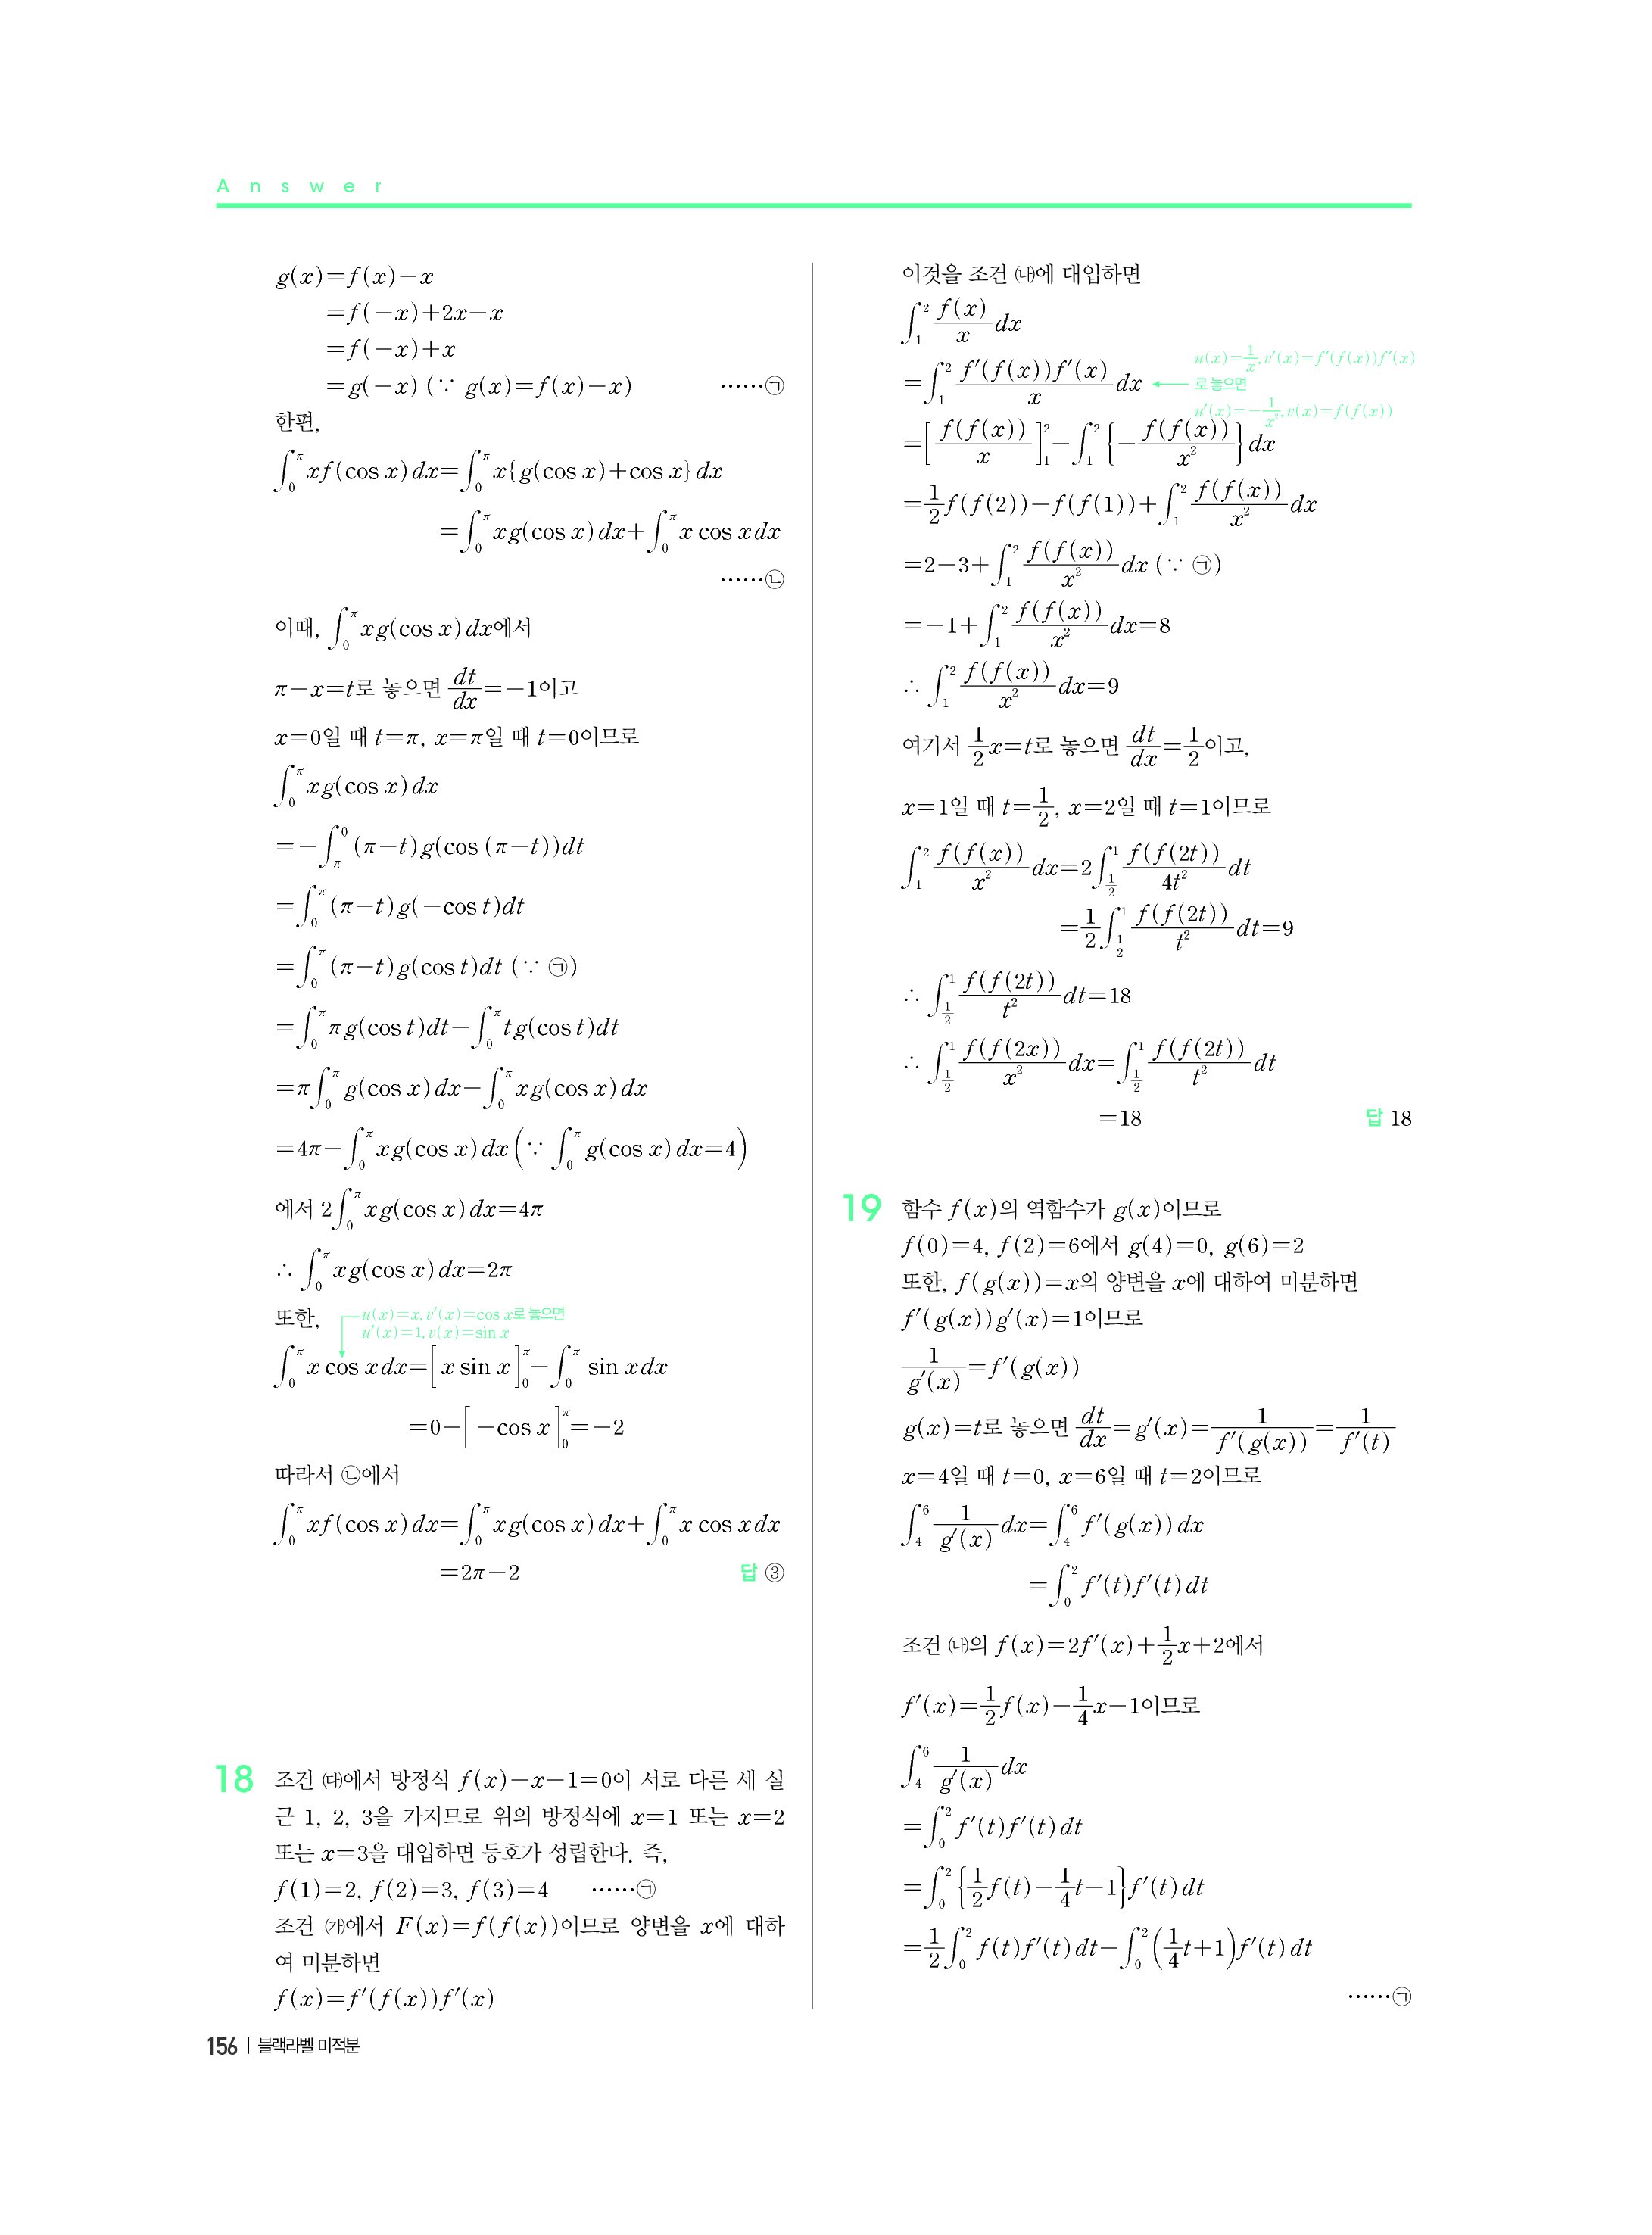 Answer
g(x)=f(x)-x
=f(-x)+2x-x
=f(-x)+x
=g(-x) (∵ g(x)=f(x)-x) ……㉠
한편,
∫₀^π xf(cos x)dx=∫₀^π x{g(cos x)+cos x}dx
=∫₀^π xg(cos x)dx+∫₀^π x cos xdx
……㉡
이때, ∫₀^π xg(cos x)dx에서
π-x=t로 놓으면 dt/dx=-1이고
x=0일 때 t=π, x=π일 때 t=0이므로
∫₀^π xg(cos x)dx
=-∫_π^0 (π-t)g(cos (π-t))dt
=∫₀^π (π-t)g(-cos t)dt
=∫₀^π (π-t)g(cos t)dt (∵ ㉠)
=∫₀^π πg(cos t)dt-∫₀^π tg(cos t)dt
=π∫₀^π g(cos x)dx-∫₀^π xg(cos x)dx
=4π-∫₀^π xg(cos x)dx (∵ ∫₀^π g(cos x)dx=4)
에서 2∫₀^π xg(cos x)dx=4π
∴ ∫₀^π xg(cos x)dx=2π
또한,
u(x)=x, v′(x)=cos x로 놓으면
u′(x)=1, v(x)=sin x
∫₀^π x cos xdx=[x sin x]₀^π-∫₀^π sin xdx
=0-[-cos x]₀^π=-2
따라서 ㉡에서
∫₀^π xf(cos x)dx=∫₀^π xg(cos x)dx+∫₀^π x cos xdx
=2π-2 답 ③
18 조건 ㈐에서 방정식 f(x)-x-1=0이 서로 다른 세 실
근 1, 2, 3을 가지므로 위의 방정식에 x=1 또는 x=2
또는 x=3을 대입하면 등호가 성립한다. 즉,
f(1)=2, f(2)=3, f(3)=4 ……㉠
조건 ㈎에서 F(x)=f(f(x))이므로 양변을 x에 대하
여 미분하면
f(x)=f′(f(x))f′(x)
이것을 조건 ㈏에 대입하면
∫₁² f(x)/x dx
=∫₁² f′(f(x))f′(x)/x dx
u(x)=1/x, v′(x)=f′(f(x))f′(x)
로 놓으면
u′(x)=-1/x², v(x)=f(f(x))
=[f(f(x))/x]₁²-∫₁² {-f(f(x))/x²}dx
=1/2 f(f(2))-f(f(1))+∫₁² f(f(x))/x² dx
=2-3+∫₁² f(f(x))/x² dx (∵ ㉠)
=-1+∫₁² f(f(x))/x² dx=8
∴ ∫₁² f(f(x))/x² dx=9
여기서 1/2 x=t로 놓으면 dt/dx=1/2이고,
x=1일 때 t=1/2, x=2일 때 t=1이므로
∫₁² f(f(x))/x² dx=2∫_{1/2}^1 f(f(2t))/4t² dt
=1/2 ∫_{1/2}^1 f(f(2t))/t² dt=9
∴ ∫_{1/2}^1 f(f(2t))/t² dt=18
∴ ∫_{1/2}^1 f(f(2x))/x² dx=∫_{1/2}^1 f(f(2t))/t² dt
=18 답 18
19 함수 f(x)의 역함수가 g(x)이므로
f(0)=4, f(2)=6에서 g(4)=0, g(6)=2
또한, f(g(x))=x의 양변을 x에 대하여 미분하면
f′(g(x))g′(x)=1이므로
1/g′(x)=f′(g(x))
g(x)=t로 놓으면 dt/dx=g′(x)=1/f′(g(x))=1/f′(t)
x=4일 때 t=0, x=6일 때 t=2이므로
∫₄⁶ 1/g′(x) dx=∫₄⁶ f′(g(x))dx
=∫₀² f′(t)f′(t)dt
조건 ㈏의 f(x)=2f′(x)+1/2 x+2에서
f′(x)=1/2 f(x)-1/4 x-1이므로
∫₄⁶ 1/g′(x) dx
=∫₀² f′(t)f′(t)dt
=∫₀² {1/2 f(t)-1/4 t-1}f′(t)dt
=1/2 ∫₀² f(t)f′(t)dt-∫₀² (1/4 t+1)f′(t)dt
……㉠
156 | 블랙라벨 미적분